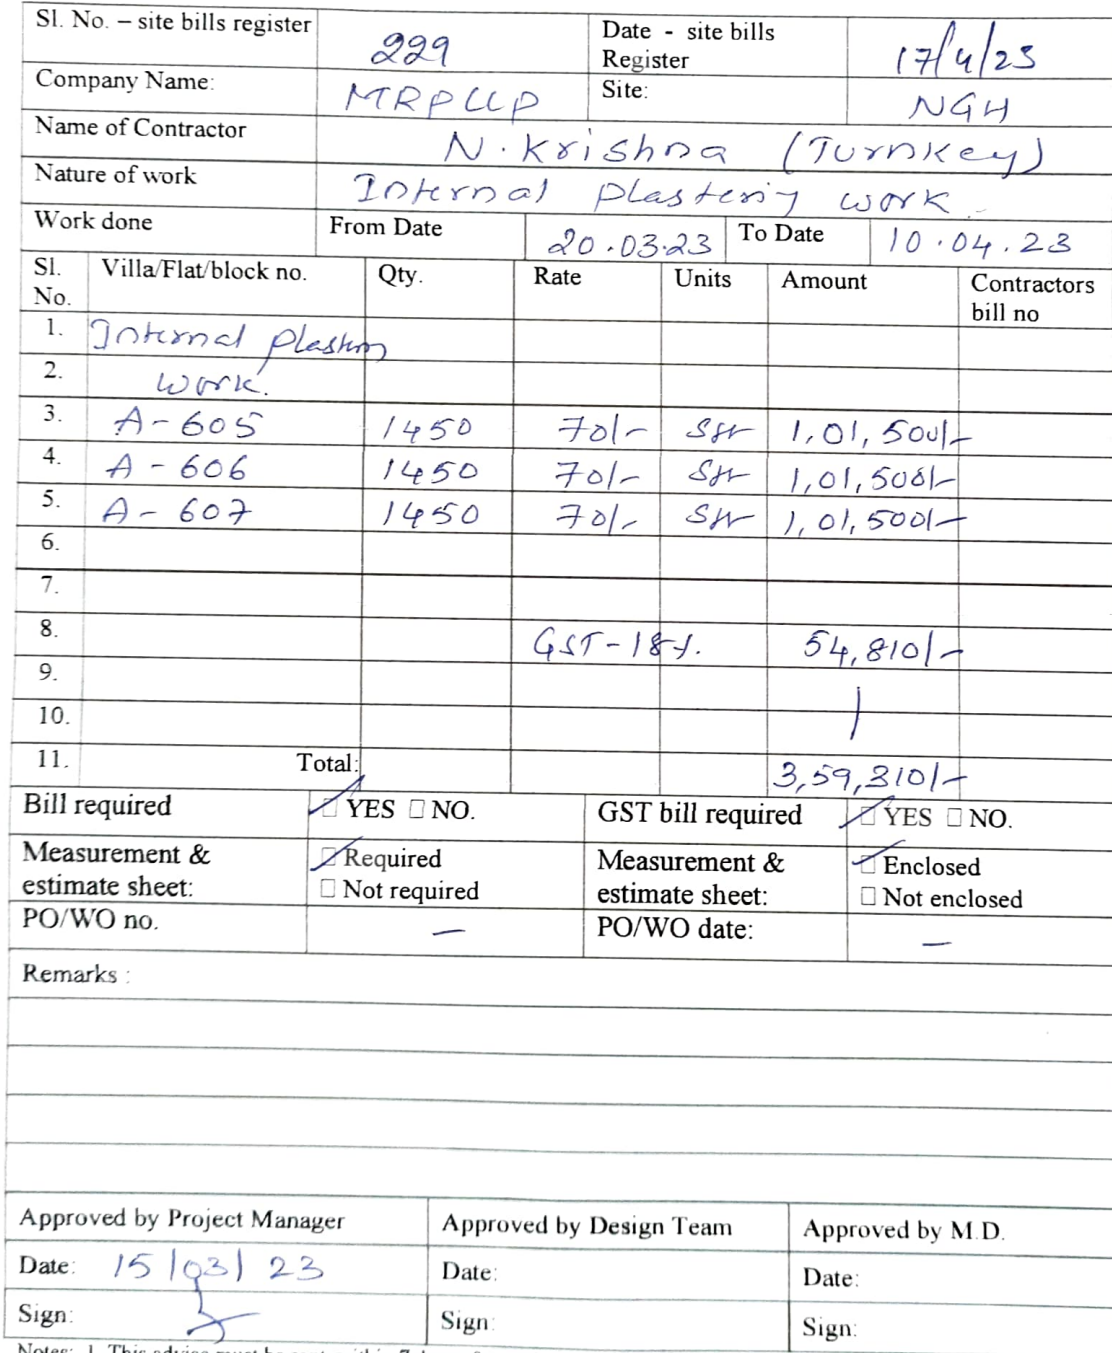 Sl. No. – site bills register 229 Date - site bills Register 17/4/23
Company Name: MRPLLP Site: NGH
Name of Contractor N. Krishna (Turnkey)
Nature of work Internal plastering work
Work done From Date 20.03.23 To Date 10.04.23
Sl. No. Villa/Flat/block no. Qty. Rate Units Amount Contractors bill no
1. Internal plastern
2. work.
3. A-605 1450 70/- Sft 1,01,500/-
4. A-606 1450 70/- Sft 1,01,500/-
5. A-607 1450 70/- Sft 1,01,500/-
6.
7.
8. GST-18%. 54,810/-
9.
10.
11. Total: 3,59,310/-
Bill required YES NO. GST bill required YES NO.
Measurement & estimate sheet: Required Not required Measurement & estimate sheet: Enclosed Not enclosed
PO/WO no. – PO/WO date: –
Remarks :
Approved by Project Manager Approved by Design Team Approved by M.D.
Date: 15/03/23 Date: Date:
Sign: Sign: Sign: